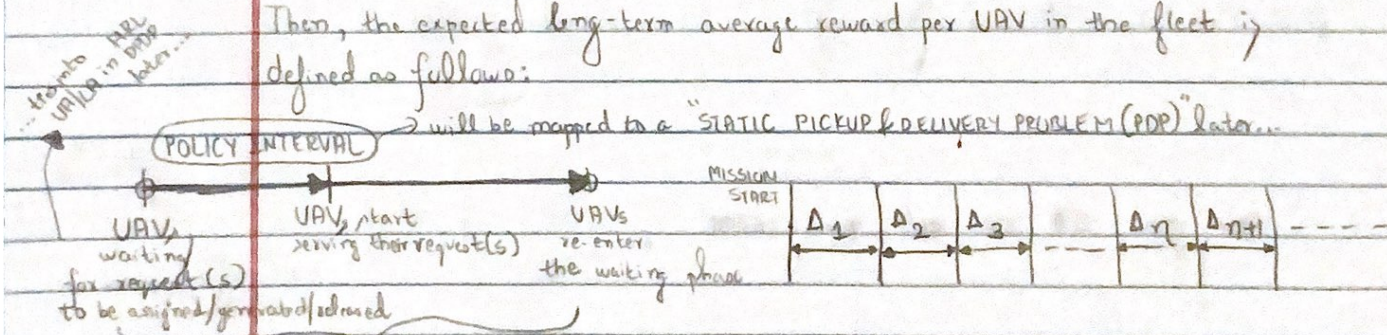 Then, the expected long-term average reward per UAV in the fleet is
defined as follows:
... tie into MRL
UA/LA in DPDP
later...
POLICY INTERVAL → will be mapped to a "STATIC PICKUP & DELIVERY PROBLEM (PDP)" later...
UAVs
waiting
for request(s)
to be assigned/generated/released
UAVs start
serving their request(s)
UAVs
re-enter
the waiting phase
MISSION
START
Δ1 Δ2 Δ3 ---- Δn Δn+1 ----